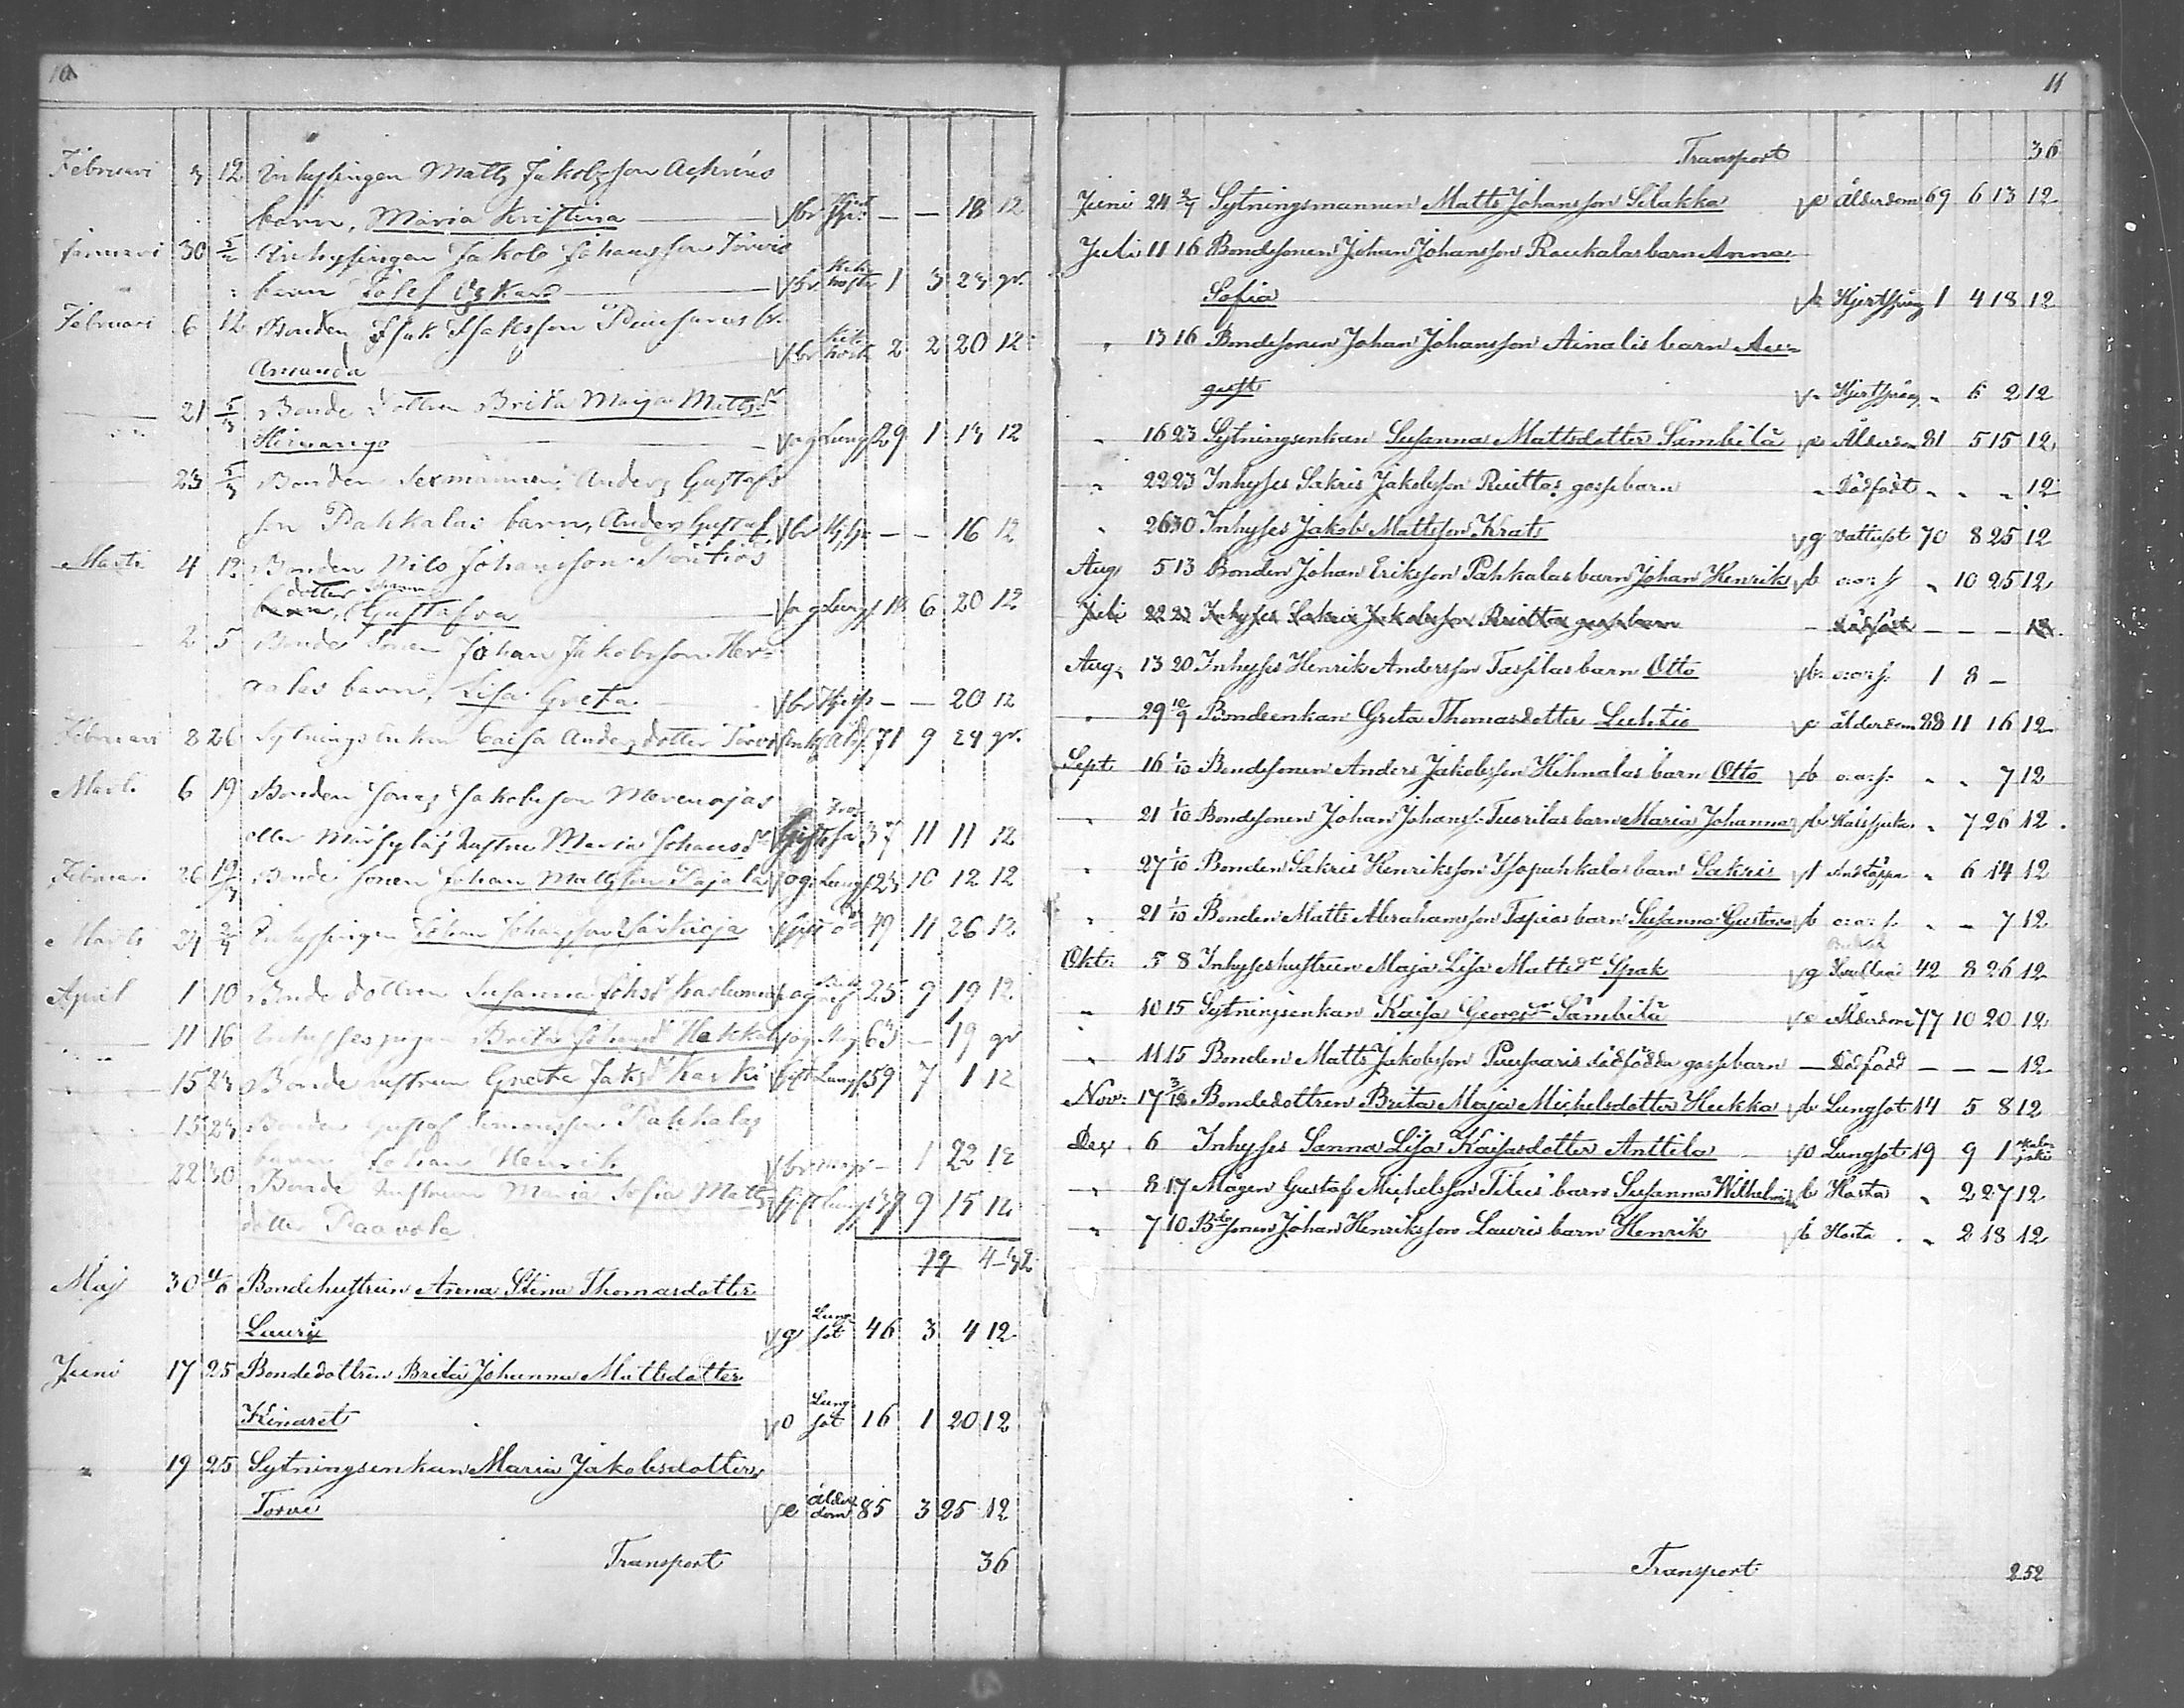 10
Februari 3 12 Inhysingen Matts Jakobsson
barn, Maria Kristina br - - 18 12
Januari 30 5/2 Inhysingen Jakob Johansson Torvis
barn Josef Oskar br kik hosta 1 3 23 gr.
Februari 6 12 Bonden Isak Isaksson b.
Amanda br kik hosta 2 2 20 12
21 5/3 Bonde dottren Brita Maija Matts dr
og Lungs 29 1 13 12
23 5/3 Bonden Sexmannen Anders Gustafs
son Pahkalas barn, Anders Gustaf br - - 16 12
Marti 4 12 Bonden Nils Johansson
dotter Johanna
Gustafva og Lungs 18 6 20 12
2 5 Bonde Sonen Johan Jakobsson Her-
ralas barn, Lisa Greta br - - 20 12
Februari 8 26 Sytnings Enkan Caisa Andersdotter Torvi Enk Åld 71 9 24 gr.
Marti 6 19 Bonden Jonas Jakobsson
eller hustru Maria Johans dr Gift 37 11 11 12
Februari 26 19/3 Bonde sonen Johan Mattsson Pajala og Lungs 23 10 12 12
Marti 24 2/4 Inhysingen Johan Johansson Gift 49 11 26 12
April 1 10 Bonde dottren Susanna Johs dr og 25 9 19 12
11 16 Inhyses pigan Brita Johans dr Hekkala og 63 - 19 gr
15 23 Bonde hustrun Greta Jaks dr Karki Gift Lungs 59 7 1 12
15 23 Bonden Gustaf Simonsson Pahkalas
barn Johan Henrik br - 1 22 12
22 30 Bonde hustrun Maria Sofia Matts
dotter Paavola Gift Lungs 39 9 15 12
Maj 30 4/6 Bondehustrun Anna Stina Thomasdotter
Lauri g Lung sot 46 3 4 12
Juni 17 25 Bondedottren Brita Johanna Mattsdotter
Kinaret o Lung sot 16 1 20 12
" 19 25 Sytningsenkan Maria Jakobsdotter
Torvi e ålder dom 85 3 25 12
Transport 36
11
Transport 36
Juni 24 2/7 Sytningsmannen Matts Johansson Silakka e ålderdom 69 6 13 12
Juli 11 16 Bondesonen Johan Johansson Raukalas barn Anna
Sofia b Hjertspång 1 4 18 12
" 13 16 Bondesonen Johan Johansson Ainalis barn Au-
gust " Hjertspång " 6 2 12
" 16 23 Sytningsenkan Susanna Mattsdotter Sämbilä e Ålderdom 81 5 15 12
" 22 23 Inhyses Sakris Jakobsson Ruittos gossebarn " Dödfödt " " " 12
" 26 30 Inhyses Jakob Mattsson Krats g Vattusot 70 8 25 12
Aug. 5 13 Bonden Johan Eriksson Pahkalas barn Johan Henrik b " 10 25 12
Juli 22 23 Inhyses Sakris Jakobsson Ruittos gossebarn - Dödfödt - - - 12
Aug. 13 20 Inhyses Henrik Andersson Tassilas barn Otto b 1 8 -
" 29 12/9 Bondeenkan Greta Thomasdotter Luhtio e ålderdom 88 11 16 12
Sept 16 1/10 Bondesonen Anders Jakobsson Hihnalas barn Otto b " " 7 12
" 21 1/10 Bondesonen Johan Johanss. Tuorilas barn Maria Johanna b Halssjuka " 7 26 12
" 27 1/10 Bonden Sakris Henriksson Isopahkalas barn Sakris Andtäppa " 6 14 12
" 21 1/10 Bonden Matts Abrahamsson Tapias barn Susanna Gustava b " - 7 12
Okt. 5 8 Inhyseshustrun Maja Lisa Matts dr Spak g 42 8 26 12
" 10 15 Sytningsenkan Kaisa Georgs dr Sämbilä e Ålderdom 77 10 20 12
" 11 15 Bonden Matts Jakobsson Puusaaris dödfödda gossebarn - Dödfödd - - - 12
Nov. 17 3/12 Bondedottren Brita Maja Michelsdotter Hukka b Lungsot 14 5 8 12
Dec. 6 Inhyses Sanna Lisa Kaisasdotter Anttila o Lungsot 19 9 1
" 8 17 Mågen Gustaf Michelsson Tilus barn Susanna Wilhelmina b Hosta " 2 27 12
" 7 10 Bdesonen Johan Henriksson Lauris barn Henrik b Hosta " 2 18 12
Transport 252